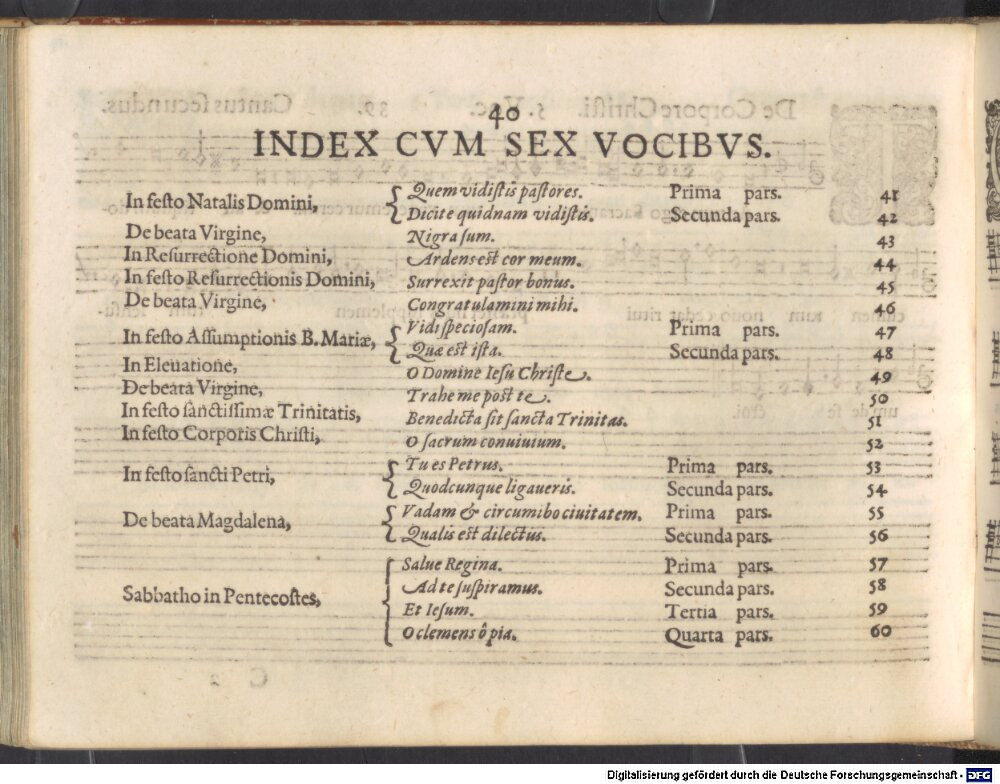 40
INDEX CVM SEX VOCIBVS.
In festo Natalis Domini, { Quem vidistis pastores. Prima pars. 41
Dicite quidnam vidistis. Secunda pars. 42
De beata Virgine, Nigra sum. 43
In Resurrectione Domini, Ardens est cor meum. 44
In festo Resurrectionis Domini, Surrexit pastor bonus. 45
De beata Virgine, Congratulamini mihi. 46
In festo Assumptionis B. Mariæ, { Vidi speciosam. Prima pars. 47
Quæ est ista. Secunda pars. 48
In Eleuatione, O Domine Iesu Christe. 49
De beata Virgine, Trahe me post te. 50
In festo sanctissimæ Trinitatis, Benedicta sit sancta Trinitas. 51
In festo Corporis Christi, O sacrum conuiuium. 52
In festo sancti Petri, { Tu es Petrus. Prima pars. 53
Quodcunque ligaueris. Secunda pars. 54
De beata Magdalena, { Vadam & circumibo ciuitatem. Prima pars. 55
Qualis est dilectus. Secunda pars. 56
Sabbatho in Pentecostes, { Salue Regina. Prima pars. 57
Ad te suspiramus. Secunda pars. 58
Et Iesum. Tertia pars. 59
O clemens ô pia. Quarta pars. 60
Digitalisierung gefördert durch die Deutsche Forschungsgemeinschaft - DFG